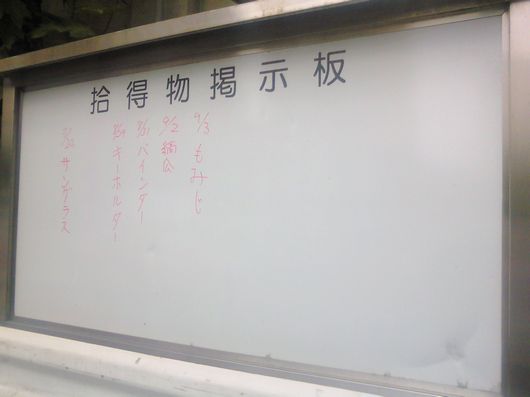 拾得物掲示板
9/3 もみじ
9/2
8/31 バインダー
キーホルダー
サングラス